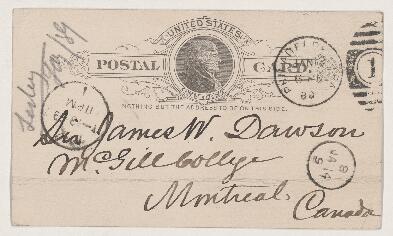 UNITED STATES
POSTAL CARD
ONE CENT
NOTHING BUT THE ADDRESS TO BE ON THIS SIDE.
Lesley
PHILADELPHIA
JAN
1
11 PM
Sir James W. Dawson
McGill College
Montreal.
Canada
8
JA 14
9